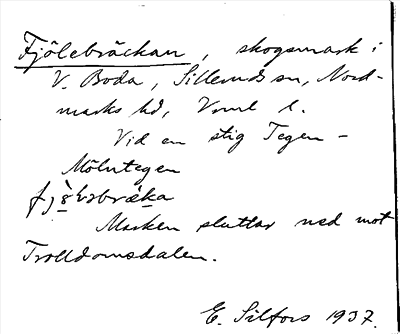 Fjölebräckan, skogsmark i
V. Boda, Silleruds sn, Nord-
marks hd, Vrml l.
Vid en stig Tegen -
Mölntegen
Marken sluttar ned mot
Trolldomsdalen.
E. Silfors 1937.